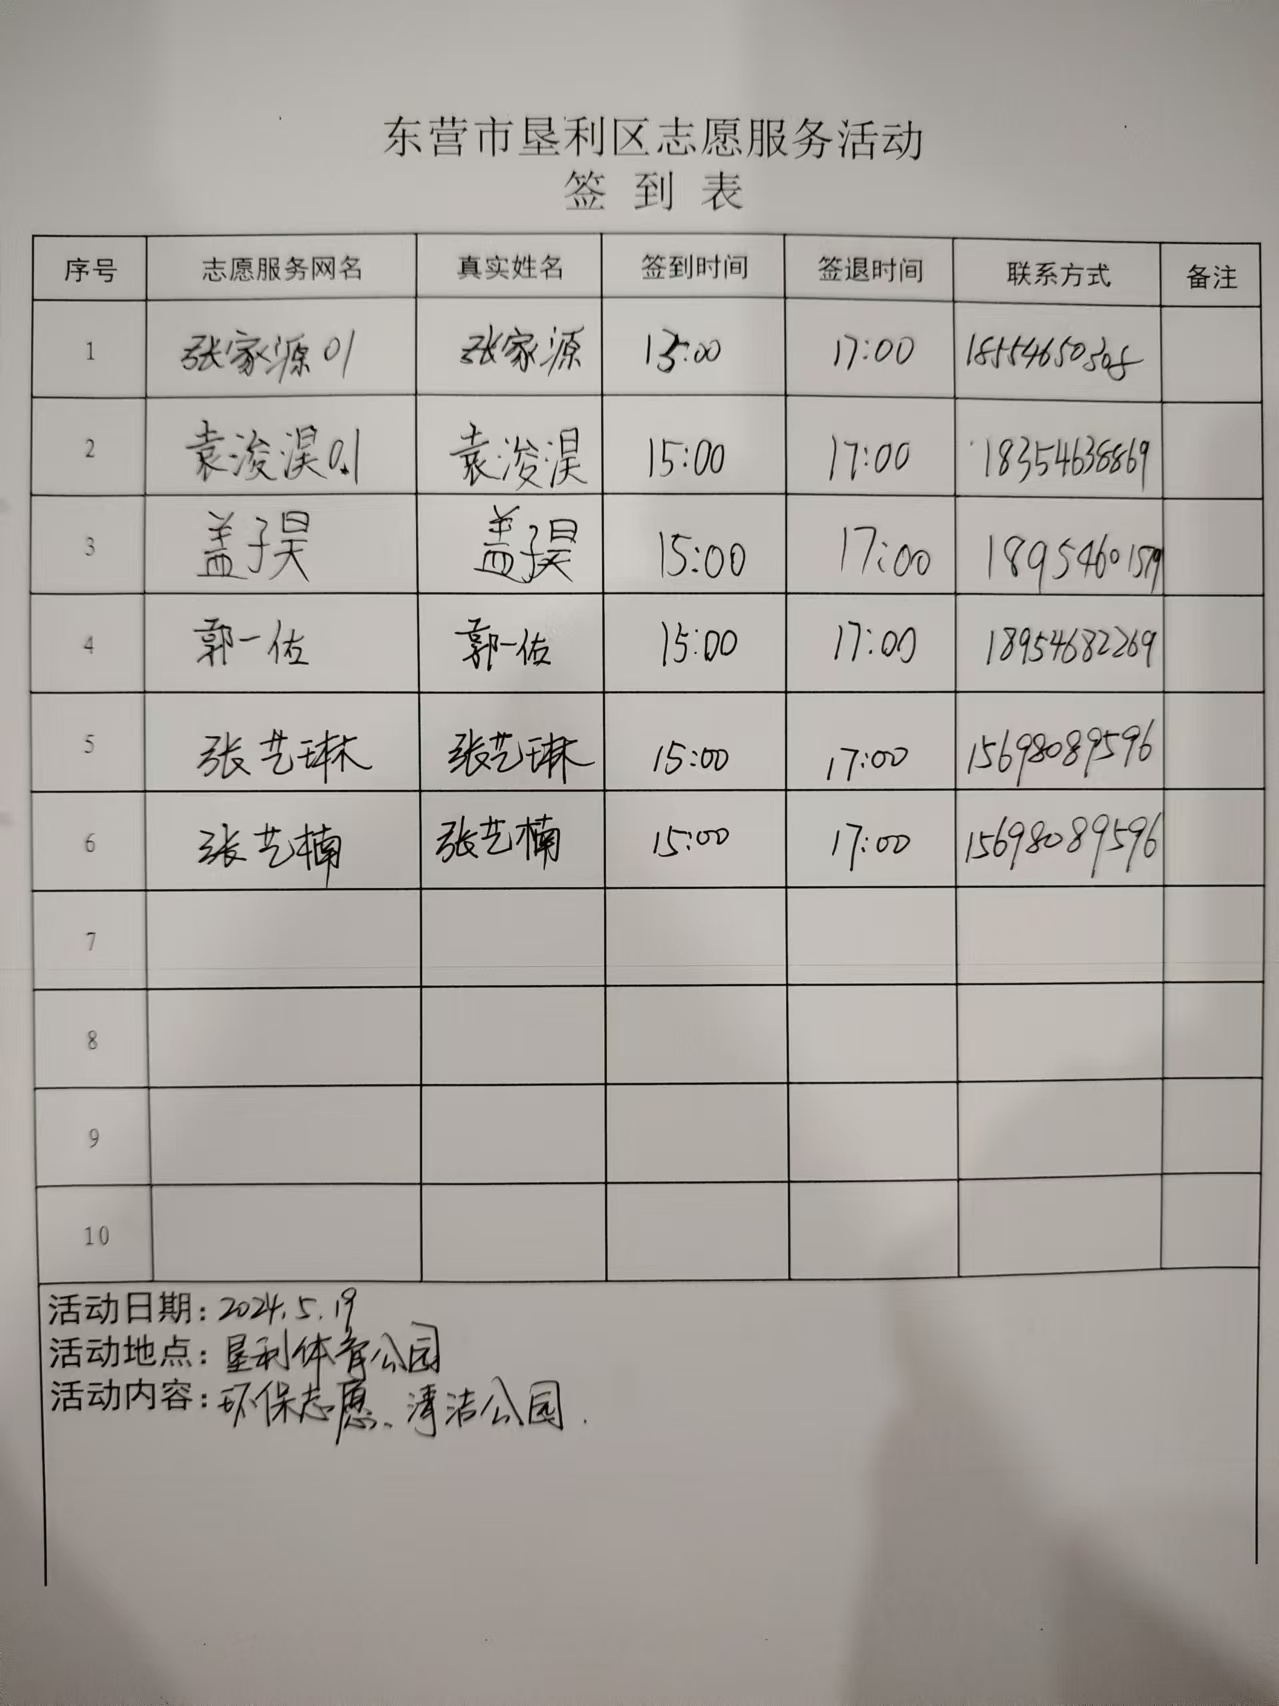 东营市垦利区志愿服务活动
签到表
序号 志愿服务网名 真实姓名 签到时间 签退时间 联系方式 备注
1 张家源01 张家源 15:00 17:00
2 袁浚淏0.1 袁浚淏 15:00 17:00 18354636869
3 盖子昊 盖子昊 15:00 17:00 18954601579
4 郭一佑 郭一佑 15:00 17:00 18954682269
5 张艺琳 张艺琳 15:00 17:00 15698089596
6 张艺楠 张艺楠 15:00 17:00 15698089596
7
8
9
10
活动日期:2024.5.19
活动地点:垦利体育公园
活动内容:环保志愿、清洁公园.